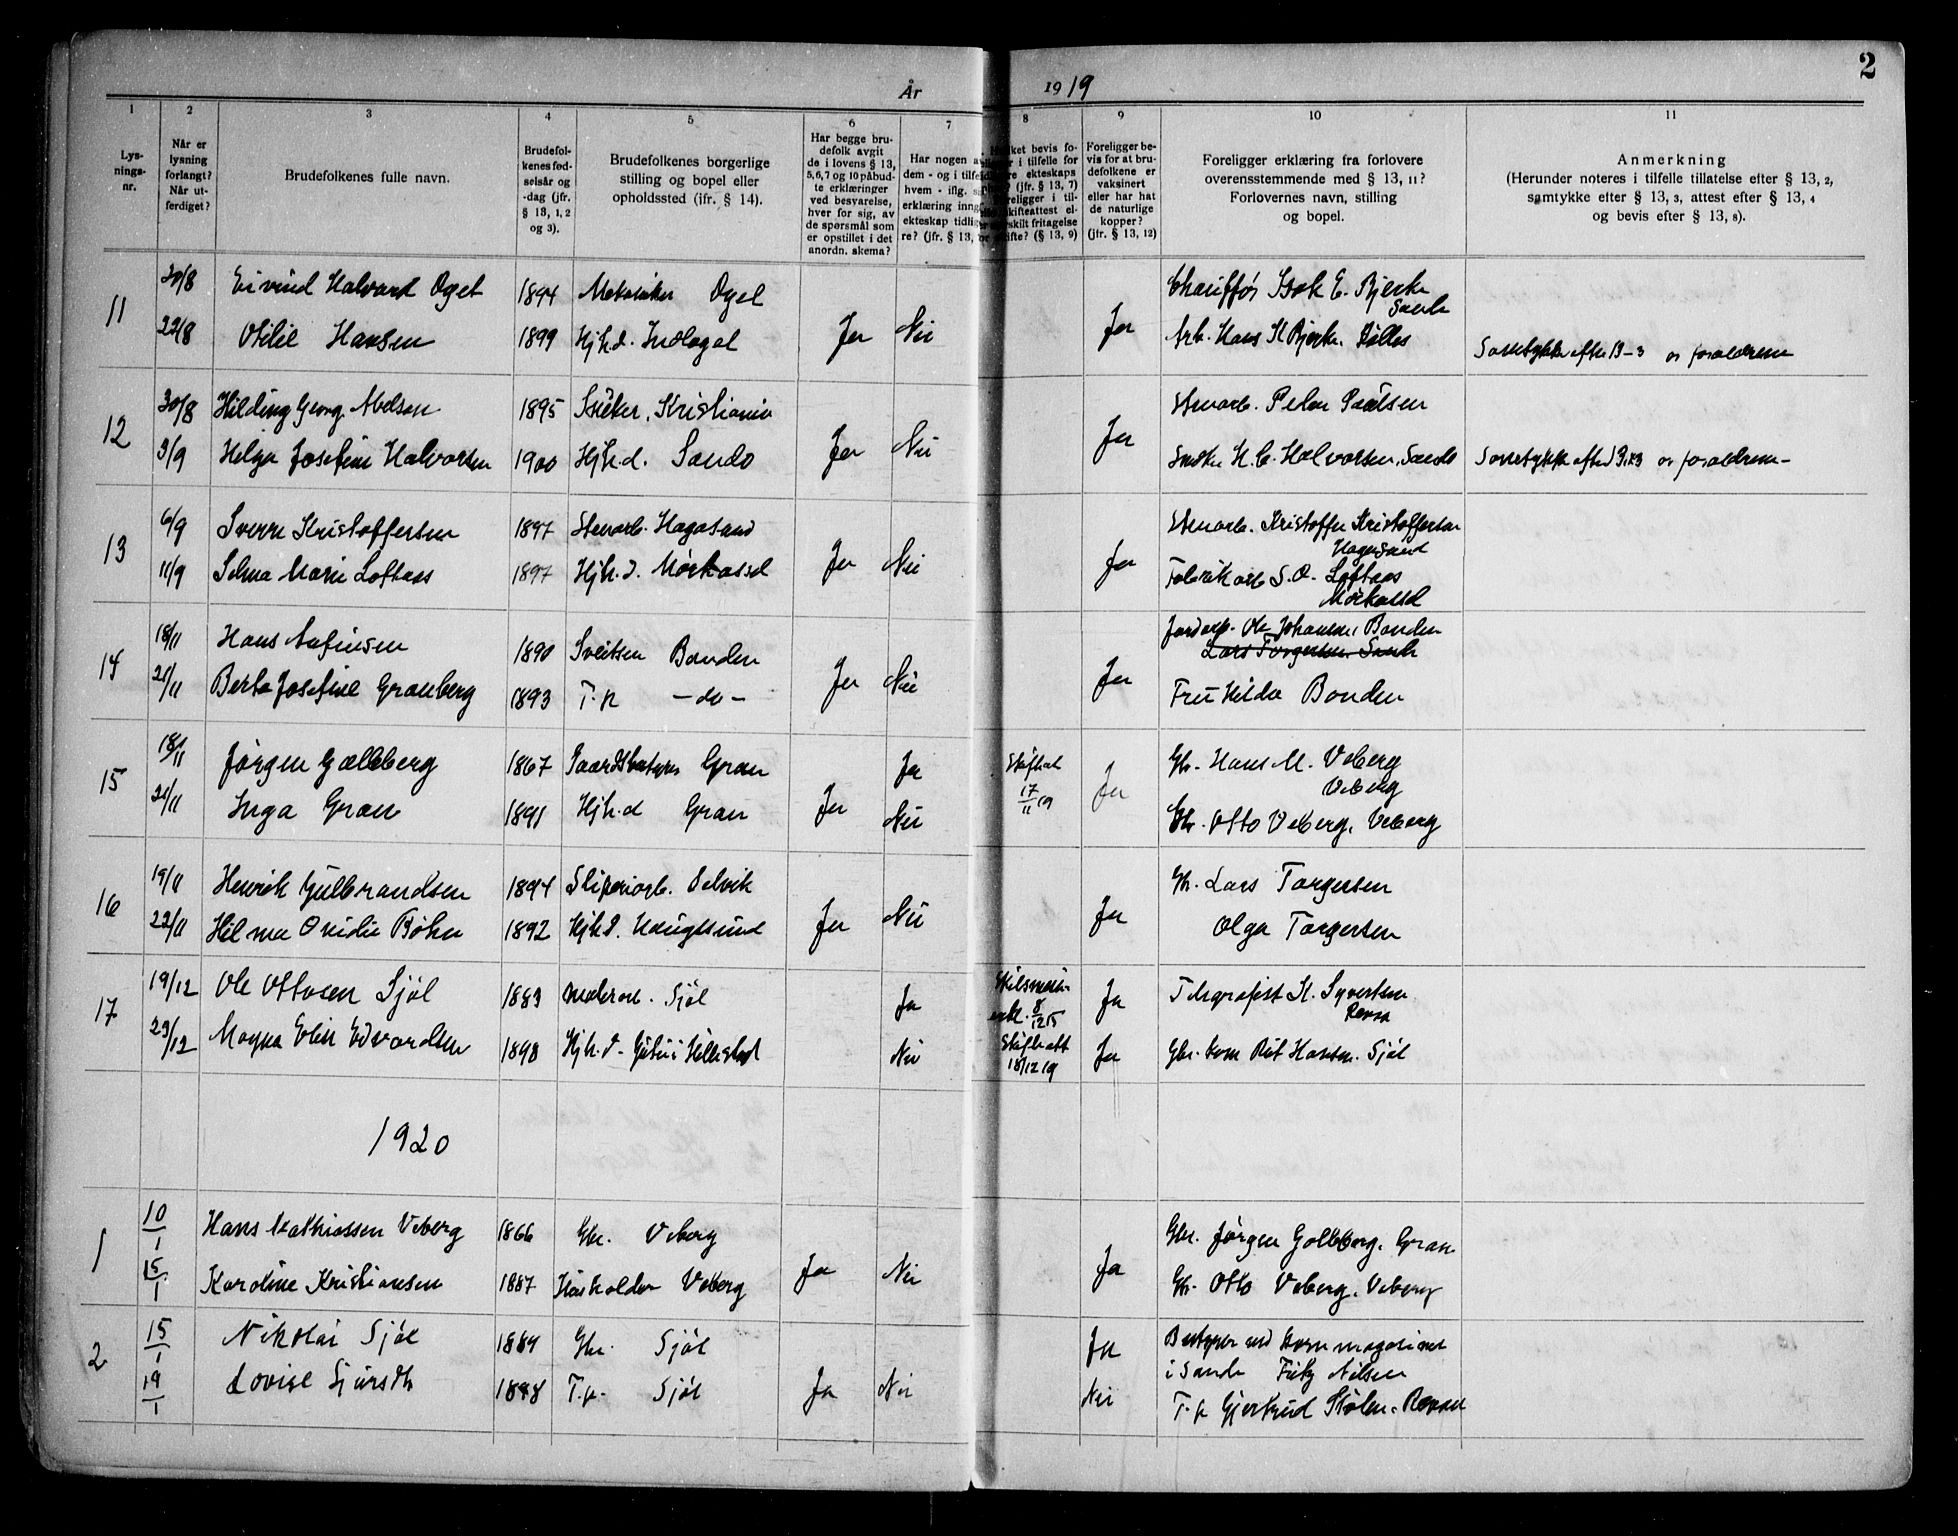 2
År 1919
1 2 3 4 5 6 7 8 9 10 11
Lys-
nings-
nr.
Når er
lysning
forlangt?
Når ut-
ferdiget?
Brudefolkenes fulle navn.
Brudefol-
kenes fød-
selsår og
-dag (jfr.
§ 13, 1, 2
og 3).
Brudefolkenes borgerlige
stilling og bopel eller
opholdssted (jfr. § 14).
Har begge bru-
defolk avgit
de i lovens § 13,
5, 6, 7 og 10 påbud-
te erklæringer
ved besvarelse,
hver for sig, av
de spørsmål som
er opstillet i det
anordn. skema?
Har nogen av
dem - og i tilfelde
hvem - iflg.
erklæring inng
ekteskap tidlig-
re? (jfr. § 13,
ket bevis fo-
r i tilfelle for
re ekteskaps
? (jfr. § 13, 7)
religger i til-
skifteattest el-
rskilt fritagelse
ifte? (§ 13, 9)
Foreligger be-
vis for at bru-
defolkene er
vaksinert
eller har hat
de naturlige
kopper?
(jfr. § 13, 12)
Foreligger erklæring fra forlovere
overensstemmende med § 13, 11?
Forlovernes navn, stilling
og bopel.
Anmerkning
(Herunder noteres i tilfelle tillatelse efter § 13, 2,
samtykke efter § 13, 3, attest efter § 13, 4
og bevis efter § 13, 8).
11 30/8 Eivind Halvard Oget 1894 Oget Chauffør Isak E. Bjerke
Sande
22/8 Otilie Hansen 1899 Hjh.d. Ja Nei Ja Arb. Hans Bjerke
Samtykke efter 13-3 av foreldrene
12 30/8 Hilding Georg Abelson 1895 Kristiania Stenarb. Peder Paulsen
3/9 Helga Josefine Halvorsen 1900 Hjh.d. Sande Ja Nei Ja H. C. Halvorsen, Sande Samtykke efter 13.3 av foreldrene
13 6/9 Sverre Kristoffersen 1897 Stenarb. Hagasand Stenarb. Kristoffer Kristoffersen
Hagasand
11/9 Selma Marie Loftaas 1897 Hjh.d. Mørkassel Ja Nei Ja Fabrikarb S. O. Loftaas
Mørkassel
14 18/11 Hans 1890 Sveitser Bonden Ole Johansen, Bonden
Lars Torgersen Sande
21/11 Berta Josefine Granberg 1893 T.p. - do - Ja Nei Ja Fru Hilda Bonden
15 18/11 Jørgen Galleberg 1867 Gaardsbestyrer Gran Ja Skifteat
17/11 19 Ja Gbr. Hans M. Veberg
Veberg
21/11 Inga Gran 1891 Hjh.d Gran Ja Nei Gbr. Otto Veberg, Veberg
16 19/11 Henrik Gulbrandsen 1894 Sliperiarb. Selvik Gbr. Lars Torgersen
22/11 Hilma Ovidie Bøhn 1892 Hjh.d. Haugesund Ja Nei Ja Olga Torgersen
17 19/12 Ole Ottosen Sjøl 1883 Sjøl Ja
8/12 15 Ja Telegrafist H. Syvertsen
Revaa
23/12 Magna Elise Edvardsen 1898 Hjh.d. Hillestad Nei Skifteatt
18/12 19 Ja Gbr. Hansen. Sjøl
1920
1 10/1 Hans Mathiassen Veberg 1866 Gbr. Veberg Gbr. Jørgen Galleberg, Gran
15/1 Karoline Kristiansen 1887 Husholder Veberg Ja Nei Ja Gbr. Otto Veberg, Veberg
2 15/1 Nikolai Sjøl 1884 Gbr. Sjøl Ja Bestyrer ved kornmagasinet
i Sande Fritz Nilsen
19/1 Lovise 1898 T.p. Sjøl Ja Nei Nei T.p Gjertrud Stølen, Revaa